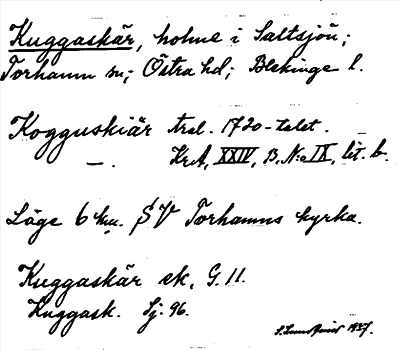 Kuggaskär, holme i Saltsjön;
Torhamn sn; Östra hd; Blekinge l.
Kogguskiär tral. 1720-talet.
— . KrA, XXIV, B. N:o IX, lit. b.
Läge 6 km. SV Torhamns kyrka.
Kuggaskär ek, G. 11.
Kuggask. Sj. 96.
1937.